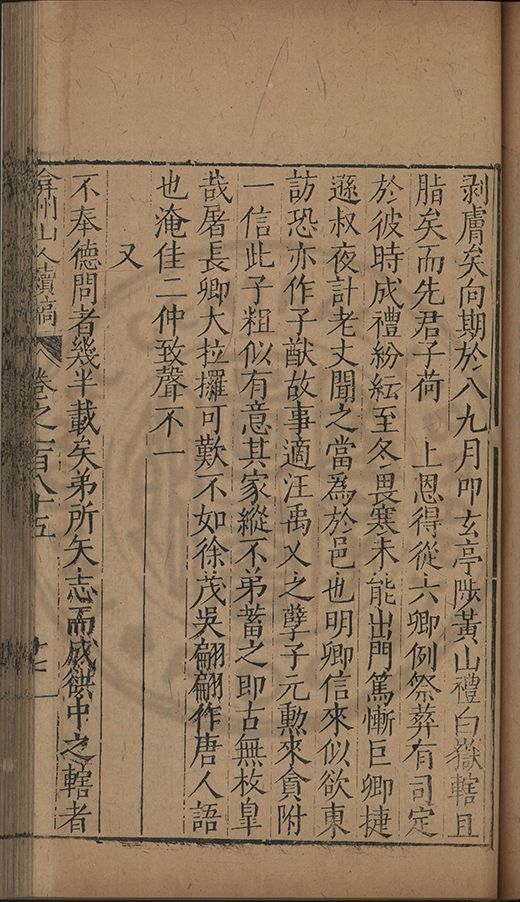 剥膚矣向期於八九月叩玄亭陟黃山禮白嶽轄且
脂矣而先君子荷　上恩得從六卿例祭葬有司定
於彼時成禮紛紜至冬畏寒未能出門篤慚巨卿捷
遜叔夜計老丈聞之當為於邑也明卿信來似欲東
訪恐亦作子猷故事適汪禹乂之孽子元勲來貟附
一信此子粗似有意其家縱不弟蓄之即古無枚皐
哉屠長卿大拉攞可歎不如徐茂吳翩翩作唐人語
也淹佳二仲致聲不一
又
不奉德問者幾半載矣弟所矢志而咸供中之轄者
弇州山人續稿　卷之一百八十五　廿一